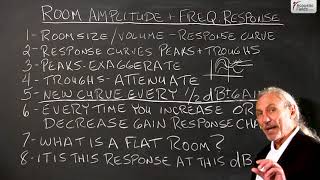 ROOM AMPLITUDE + FREQ. RESPONSE
1- ROOM SIZE/VOLUME - RESPONSE CURVE
2- RESPONSE CURVES PEAKS + TROUGHS
3- PEAKS - EXAGGERATE
4- TROUGHS - ATTENUATE
5- NEW CURVE EVERY 1/2 dB± GAIN
6- EVERY TIME YOU INCREASE OR
DECREASE GAIN RESPONSE CHA
7- WHAT IS A FLAT ROOM?
8- IT IS THIS RESPONSE AT THIS dB
Acoustic Fields